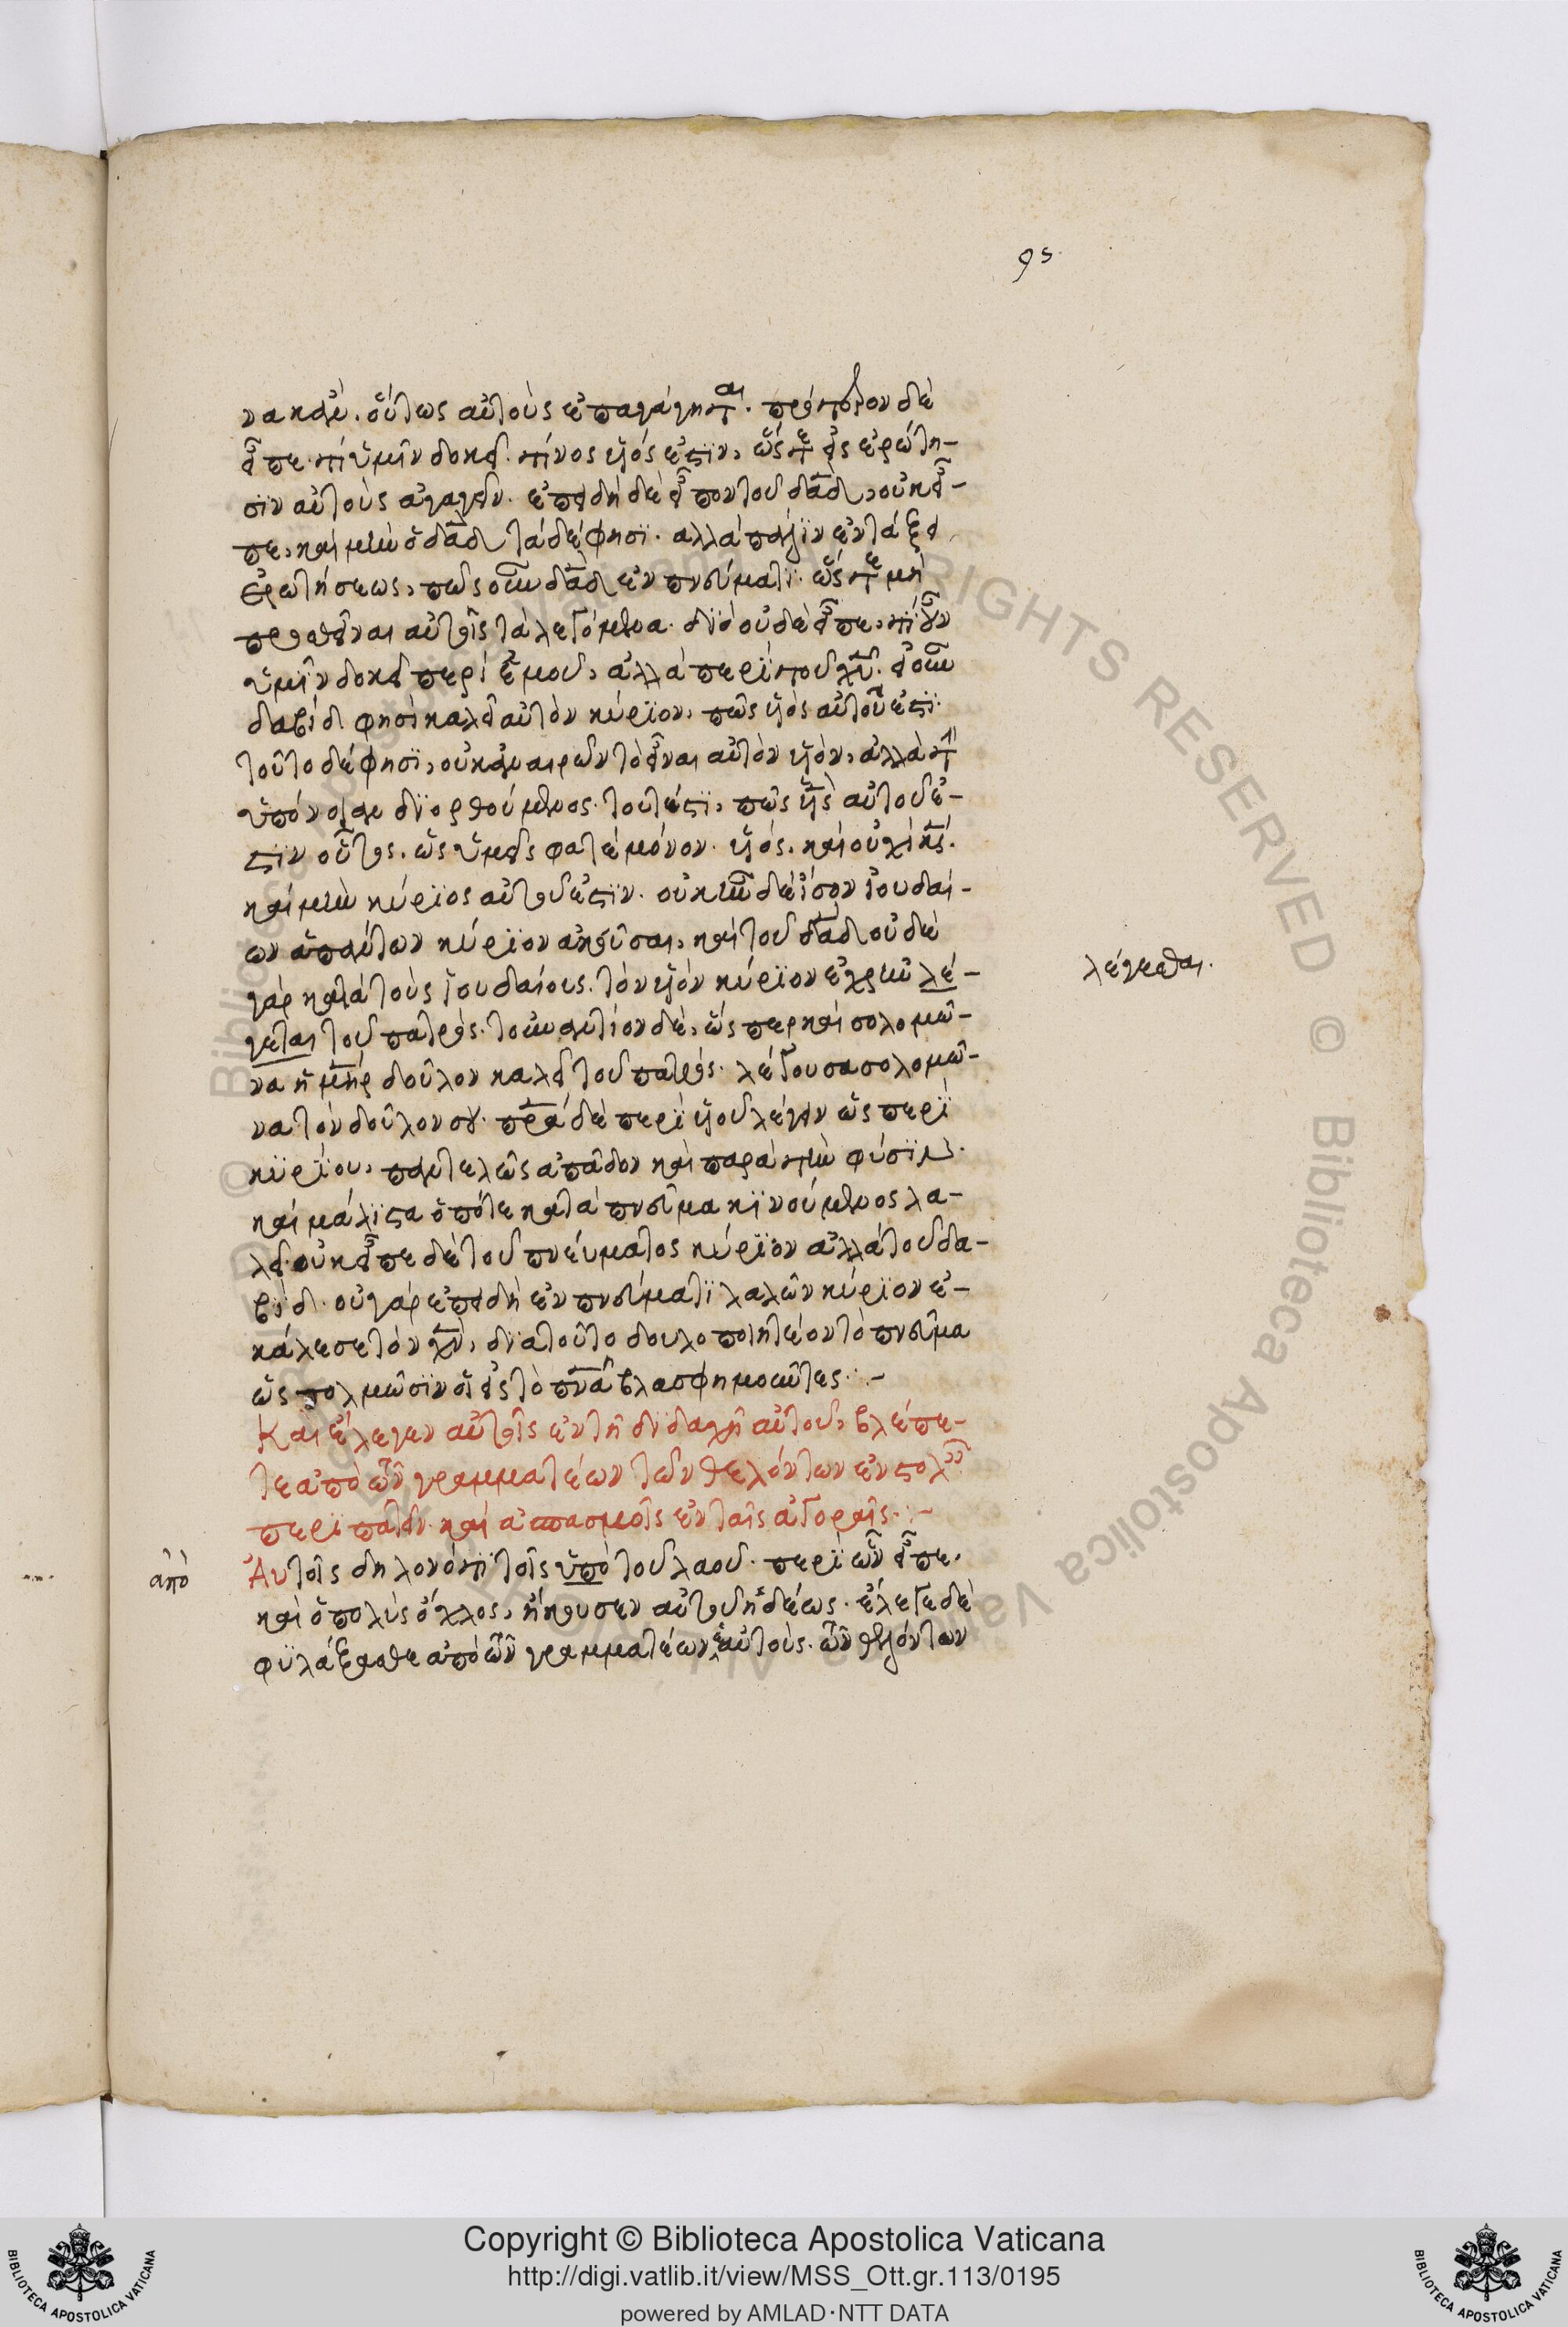 95
να κἂν οὕτως αὐτοὺς ἐπαγάγηται. πρότερον δὲ
εἶπε. τί ὑμῖν δοκεῖ. τίνος υἱός ἐστιν, ὥστε εἰς ἐρώτη-
σιν αὐτοὺς ἀγαγεῖν. ἐπειδὴ δὲ εἶπον τοῦ δαδ, οὐκ εἶ-
πε, καὶ μὴν ὁ δαδ τάδε φησί. ἀλλὰ πάλιν ἐν τάξει
ἐρωτήσεως, πῶς οὖν δαδ ἐν πνεύματι. ὥστε μὴ
αὐτοῖς τὰ λεγόμενα. διὸ οὐδὲ εἶπε, τί
ὑμῖν δοκεῖ περὶ ἐμοῦ, ἀλλὰ περὶ τοῦ χυ. εἰ οὖν
δαβίδ φησὶ καλεῖ αὐτὸν κύριον, πῶς υἱὸς αὐτοῦ ἐστι.
τοῦτο δέ φησι, οὐκ ἀναιρῶν τὸ εἶναι αὐτὸν υἱόν, ἀλλὰ τὴν
ὑπόνοιαν διορθούμενος. τουτέστι, πῶς υἱὸς αὐτοῦ ἐ-
στιν οὗτος, ὡς ὑμεῖς φατέ μόνον υἱός, καὶ οὐχὶ κς.
καὶ μὴν κύριος αὐτοῦ ἐστιν. οὐκ ἦν δὲ ἴσον ἰουδαί-
ων ἁπάντων κύριον ἀκοῦσαι, καὶ τοῦ δαδ οὐδὲ
γὰρ κατὰ τοὺς ἰουδαίους τὸν υἱὸν κύριον ἐχρῆν λέ-
λέγεσθαι.
γεται τοῦ πατρός. τοὐναντίον δὲ, ὥσπερ καὶ σολομῶ-
να ἡ μηρ δοῦλον καλεῖ τοῦ πατρός. λέγουσα σολομῶ-
να τὸν δοῦλον σου. πρα δὲ περὶ υἱοῦ λέγειν ὡς περὶ
κυρίου, παντελῶς ἀπᾶδον καὶ παρὰ τὴν φύσιν.
καὶ μάλιστα ὁπότε κατὰ πνεῦμα κινούμενος λα-
λεῖ. οὐκ εἶπε δὲ τοῦ πνεύματος κύριον ἀλλὰ τοῦ δα-
βίδ. οὐ γὰρ ἐπειδὴ ἐν πνεύματι λαλῶν κύριον ἐ-
κάλεσε τὸν χν, διὰ τοῦτο δουλοποιητέον τὸ πνεῦμα
ὡς τολμῶσιν οἱ εἰς τὸ πνα βλασφημοῦντες.:-
Καὶ ἔλεγεν αὐτοῖς ἐν τῇ διδαχῇ αὐτοῦ, βλέπε-
τε ἀπὸ τῶν γραμματέων τῶν θελόντων ἐν στολαῖς
περιπατεῖν. καὶ ἀσπασμοὺς ἐν ταῖς ἀγοραῖς.:-
ἀπὸ
Αὐτοῖς δηλονότι τοῖς ὑπὸ τοῦ λαοῦ. περὶ ὧν εἶπε.
καὶ ὁ πολὺς ὄχλος, ἤκουσεν αὐτοῦ ἡδέως. ἔλεγε δὲ
φυλάξασθε ἀπὸ τῶν γραμματέων αὐτούς. τῶν θελόντων
Copyright © Biblioteca Apostolica Vaticana
http://digi.vatlib.it/view/MSS_Ott.gr.113/0195
powered by AMLAD·NTT DATA